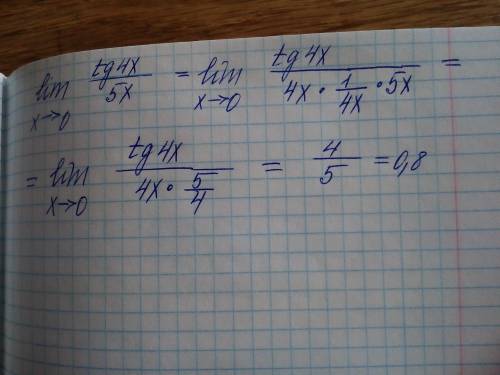 lim x→0 tg4x / 5x = lim x→0 tg4x / (4x · 1/4x · 5x) =
= lim x→0 tg4x / (4x · 5/4) = 4/5 = 0,8